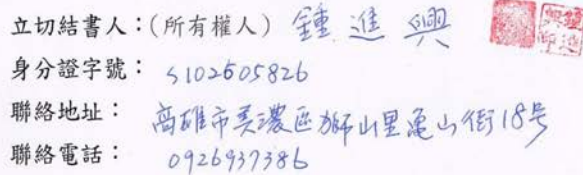 立切結書人：(所有權人) 鍾進興
身分證字號： S102605826
聯絡地址： 高雄市美濃區獅山里龜山街18号
聯絡電話： 0926937386